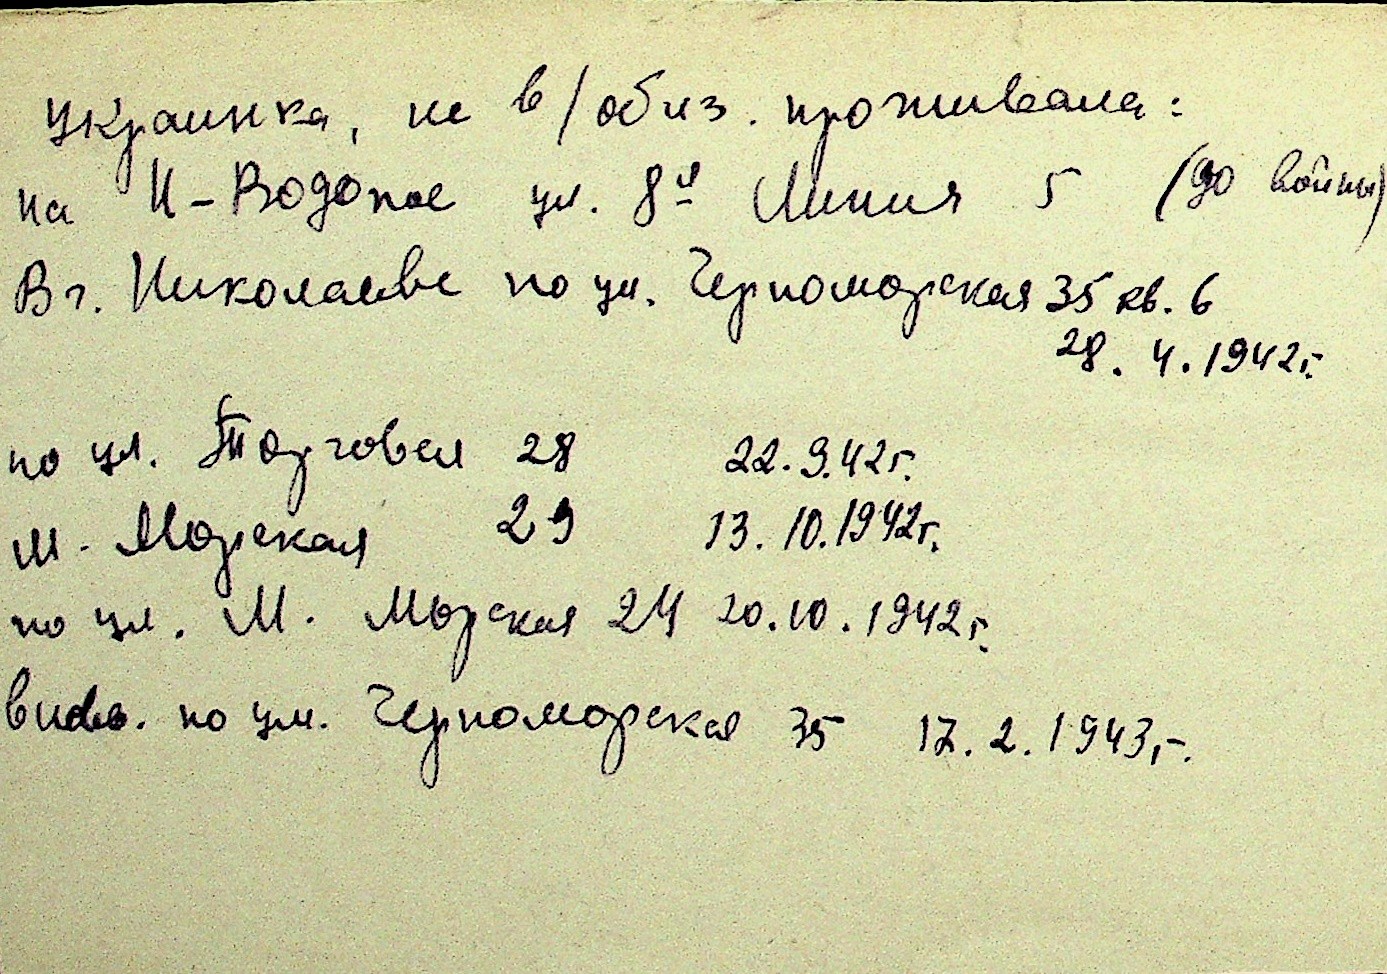 украинка, не в/обяз. проживала:
на И-Водопое ул. 8я Линия 5 (до войны)
В г. Николаеве по ул. Черноморская 35 кв. 6
28. 4. 1942г.
по ул. Торговая 28 22.9.42г.
М. Морская 29 13.10.1942г.
по ул. М. Морская 24 20.10.1942г.
по ул. Черноморская 35 17.2.1943г.